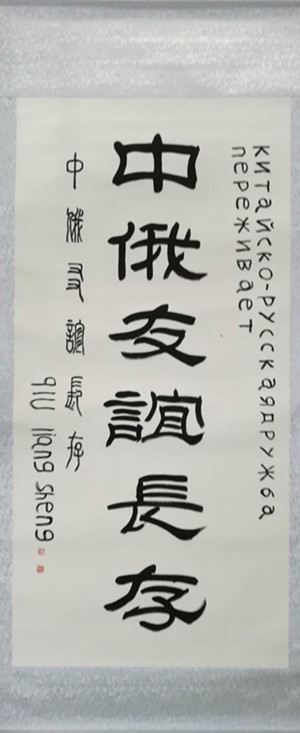 китайско-русскаядружба
переживает
中俄友誼長存
中俄友誼長存
qiu liang sheng